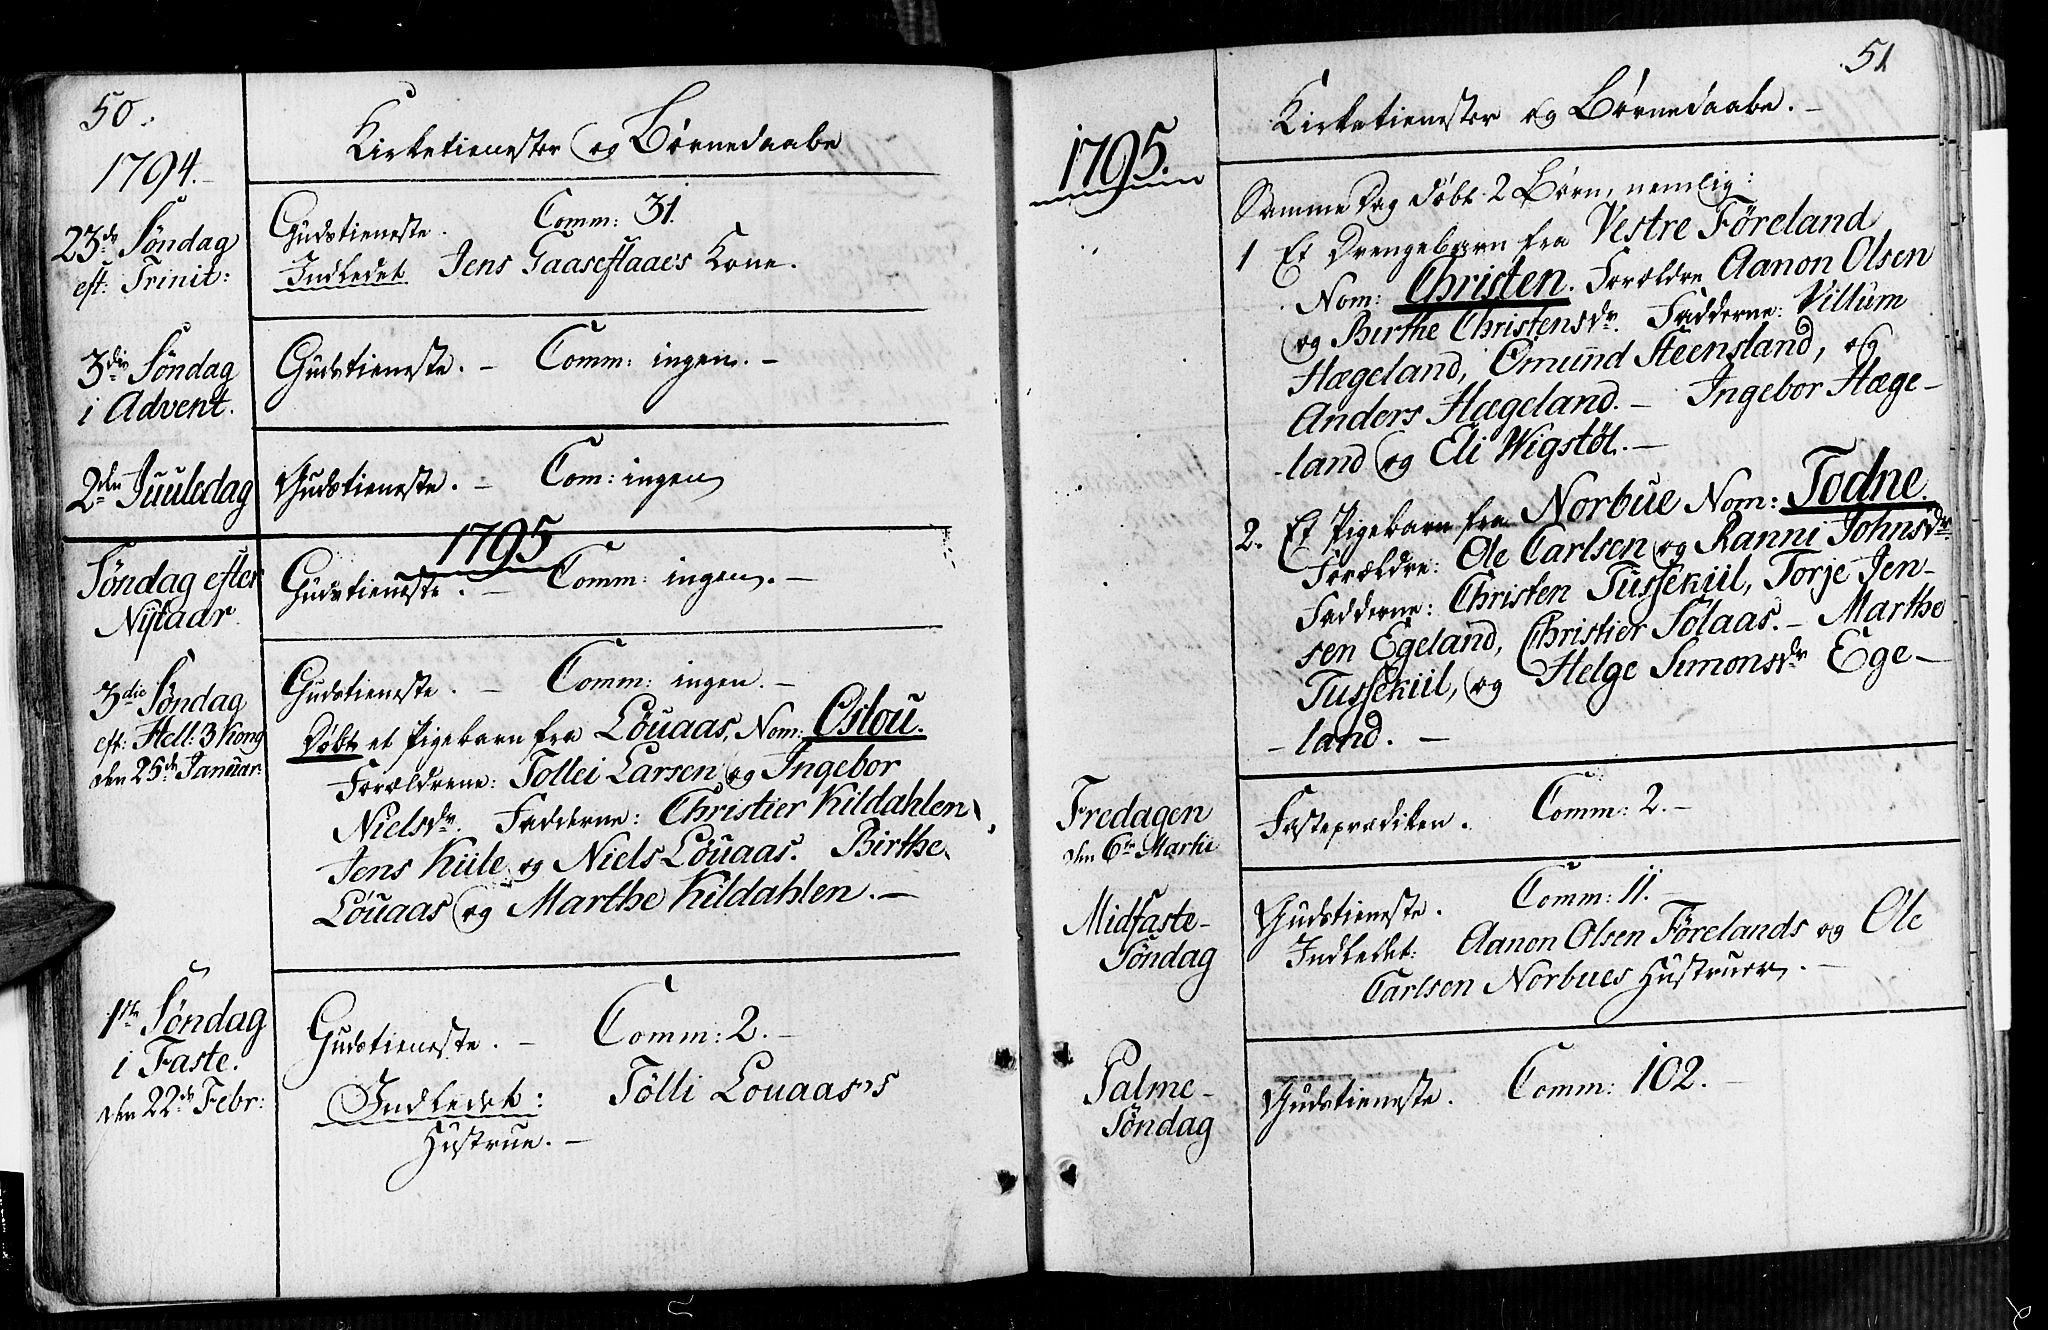 50.
1794.
Kirketienester og Børnedaabe
23de Søndag
eft: Trinit:
Gudstieneste. Comm: 31.
Indledet Jens Gaaseflaaes Kone.
3die Søndag
i Advent.
Gudstieneste. – Comm: ingen. –
2den Juuledag
Gudstieneste. – Com: ingen
1795
Søndag efter
Nytaar.
Gudstieneste. – Comm: ingen. –
3die Søndag
eft: Hell: 3 Kong
den 25de Januar:
Gudstieneste. – Comm: ingen. –
Døbt et Pigebarn fra Løuaas, Nom: Oslou.
Forældrene: Tollei Larsen og Ingebor
Nielsdr. Fadderne: Christier Kildahlen,
Jens Kiile og Niels Løuaas. Birthe
Løuaas og Marthe Kildahlen. –
1ste Søndag
i Faste.
den 22de Febr:
Gudstieneste. – Comm: 2. –
Indledet: Tölli Louaas's
Hustrue. –
51
1795.
Kirketienester og Børnedaabe. –
Samme Dag døbt 2 Børn, nemlig:
1 Et Drengebarn fra Vestre Føreland
Nom: Christen. Forældre Aanon Olsen
og Birthe Christensdr. Fadderne: Villum
Hægeland, Omund Steensland, og
Anders Hægeland. – Ingebor Hæge-
-land og Eli Wigstøl. –
2. Et Pigebarn fra Norbue Nom: Todne.
Forældre: Ole Carlsen og Ranni Johnsdr
Fadderne: Christen Tussekiil, Torje Jen-
sen Egeland, Christier Solaas. – Marthe
Tussekiil, og Helge Simonsdr Ege-
-land. –
Fredagen
den 6te Martii
Fasteprædiken. Comm: 2. –
Midfaste-
Søndag
Gudstieneste. Comm: 11. –
Indledet: Aanon Olsen Førelands og Ole
Carlsen Norbues Hustruer. –
Palme-
Søndag
Gudstieneste. Comm: 102. –